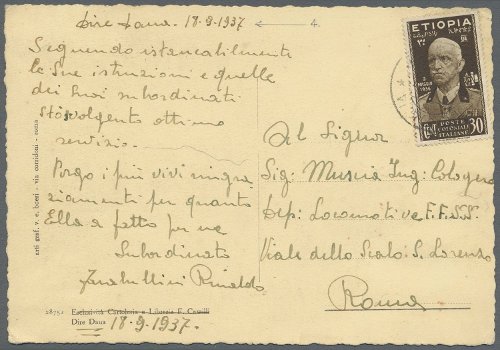 Dire Daua. 18-9-1937 4.
Seguendo istancabilmente
le Sue istruzioni e quelle
dei Suoi subordinati
sto svolgento ottimo
servizio.
Porgo i più vivi ringra
ziamenti per quanto
Ella a fatto per me
Subordinato
Rinaldo
ETIOPIA
POSTE
COLONIALI
ITALIANE
CENT 30
Al Signor
Sig: Muscia Ing: Cologero
Dep: Locomotive F.F.S.S.
Viale dello Scalo S. Lorenzo
Roma
arti graf. v. e. boeri - via cornidoni - roma
28751 Esclusività Cartoleria e Libreria F. Castelli
Dire Daua 18-9-1937.